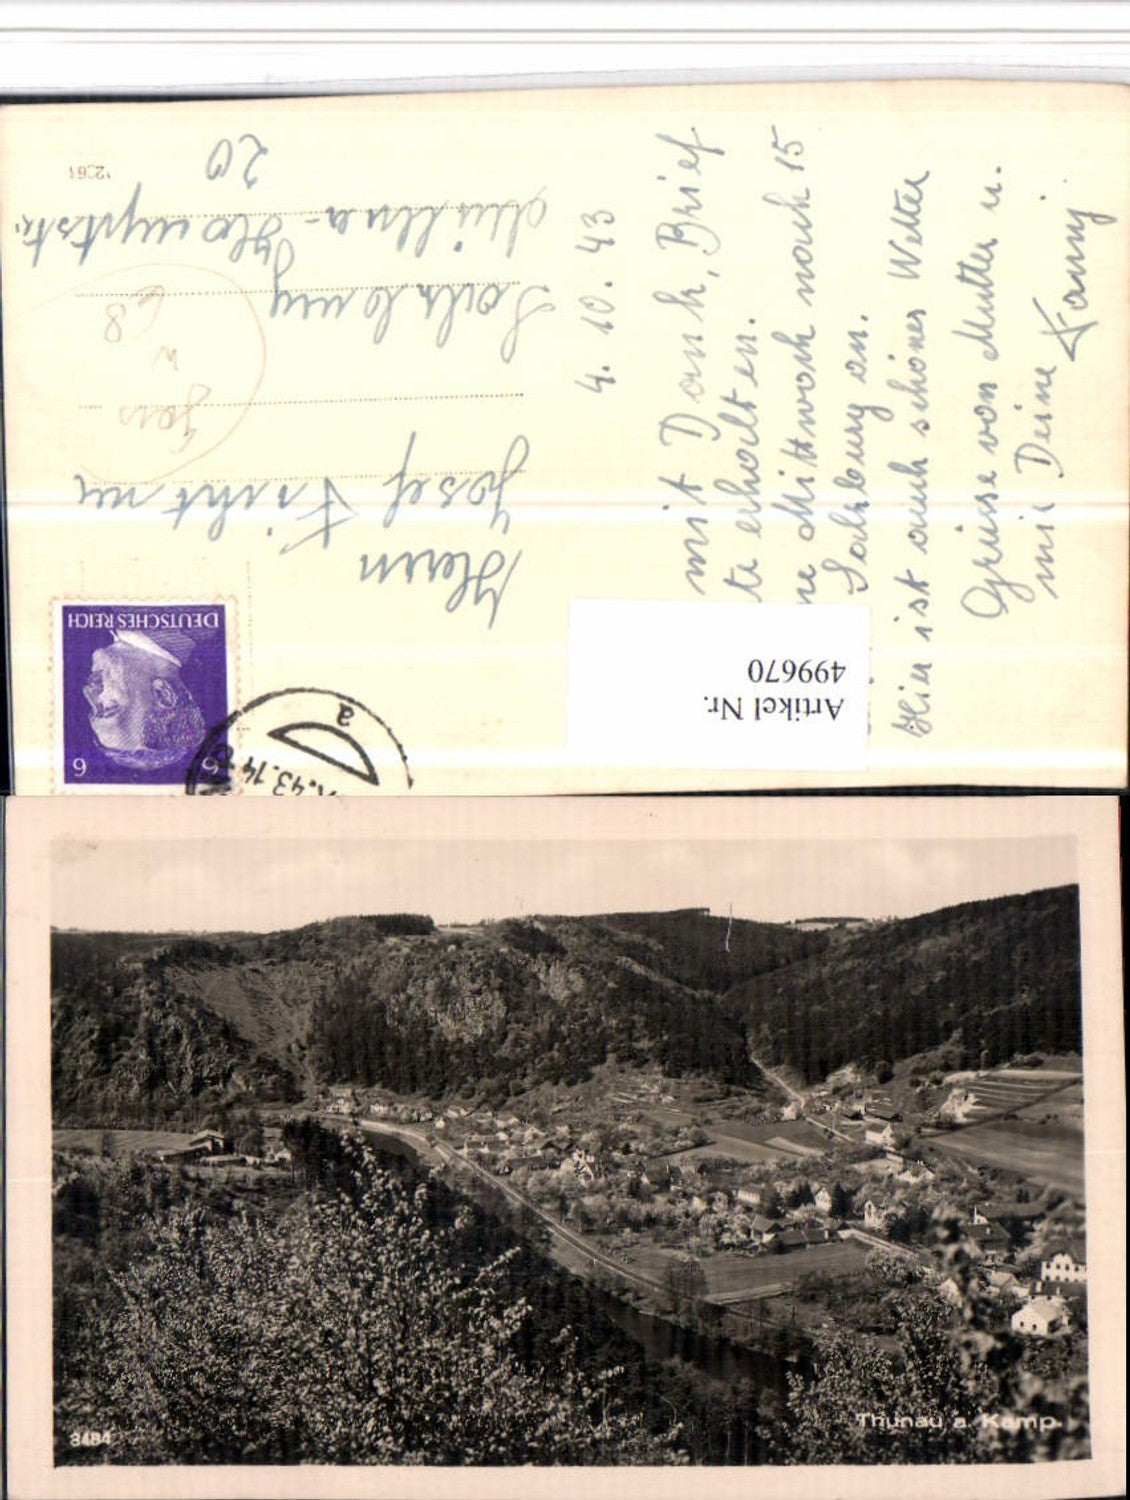 4. 10. 43
mit Dank, Brief
te erhalten.
ne Mittwoch nach 15
Salzburg an.
Hier ist auch schönes Wetter
Grüsse von Mutter u.
mir Deine
Fanny
Herrn
Josef
Salzburg
Müllner-Hauptstr.
20
68
DEUTSCHES REICH
6
6
.43.14
a
Artikel Nr.
499670
3484
Thunau a. Kamp